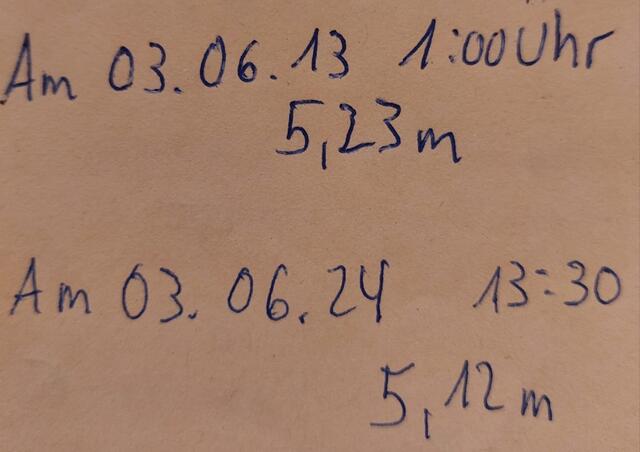 Am 03.06.13 1:00 Uhr
5,23m
Am 03.06.24 13:30
5,12m